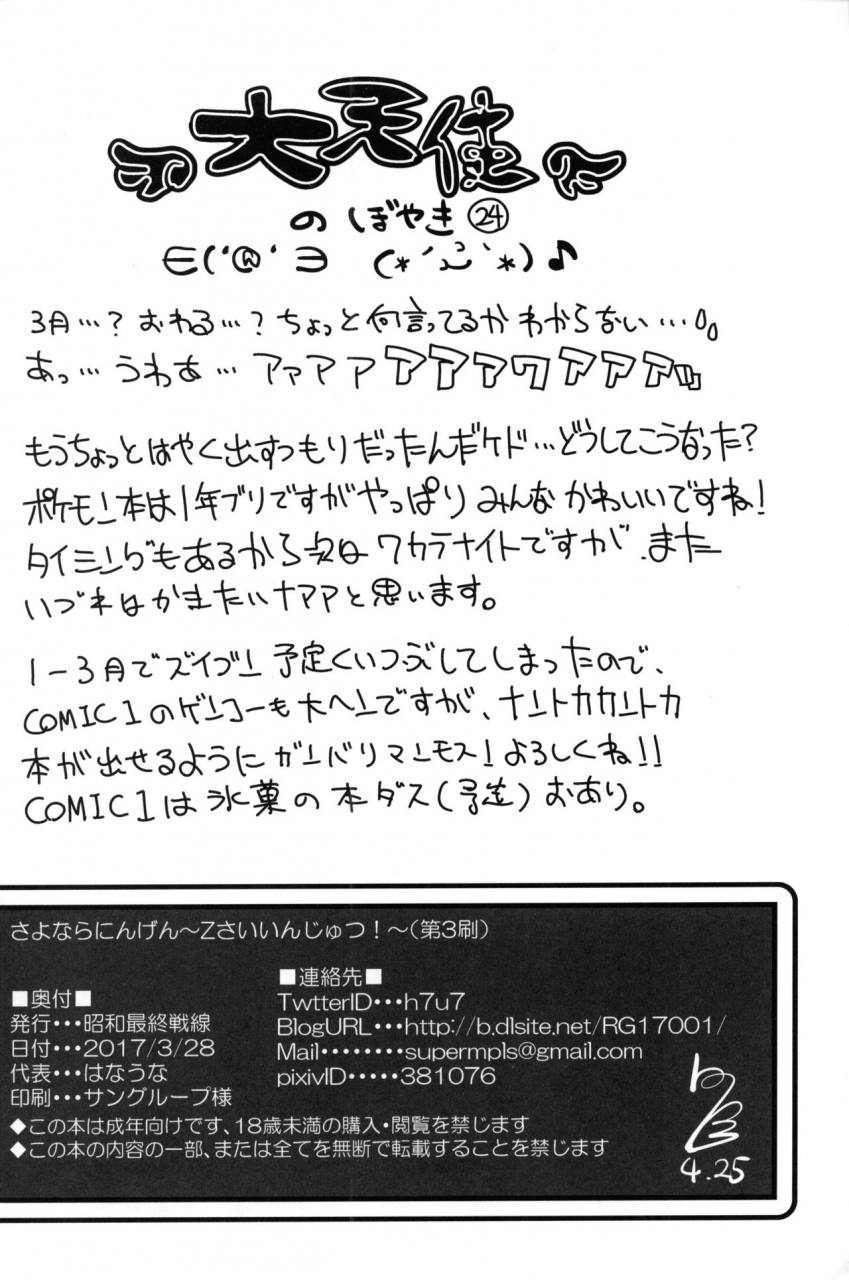 大天使
のぼやき㉔
∈(‘@‘∋ (*´ω`*)♪
3月…?おわる…?ちょっと何言ってるかわからない…
あっ…うわあ…アァアアアアァワアアアッ
もうちょっとはやく出すつもりだったんだケド…どうしてこうなった?
ポケモン本は1年ブリですがやっぱりみんなかわいいですね!
タイミングもあるから次はワカラナイトですが、また
いづれはかきたいナアアと思います。
1-3月でズイブン予定くいつぶしてしまったので、
COMIC1のゲンコーも大ヘンですが、ナントカカントカ
本が出せるようにガンバリマンモス!よろしくね!!
COMIC1は氷菓の本ダス( )おあり。
さよならにんげん～Zさいいんじゅつ!～(第3刷)
■奥付■
発行・・・昭和最終戦線
日付・・・2017/3/28
代表・・・はなうな
印刷・・・サングループ様
■連絡先■
TwtterID・・・h7u7
BlogURL・・・http://b.dlsite.net/RG17001/
Mail・・・・・・・・supermpls@gmail.com
pixivID・・・・・381076
◆この本は成年向けです、18歳未満の購入・閲覧を禁じます
◆この本の内容の一部、または全てを無断で転載することを禁じます
4.25